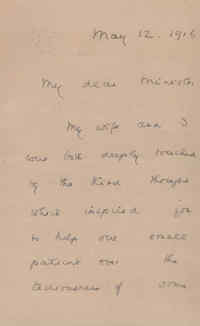 May 12. 1916
My dear Minister
My wife and I
were both deeply touched
by the kind thought
which inspired you
to help our small
patient over the
tediousness of some